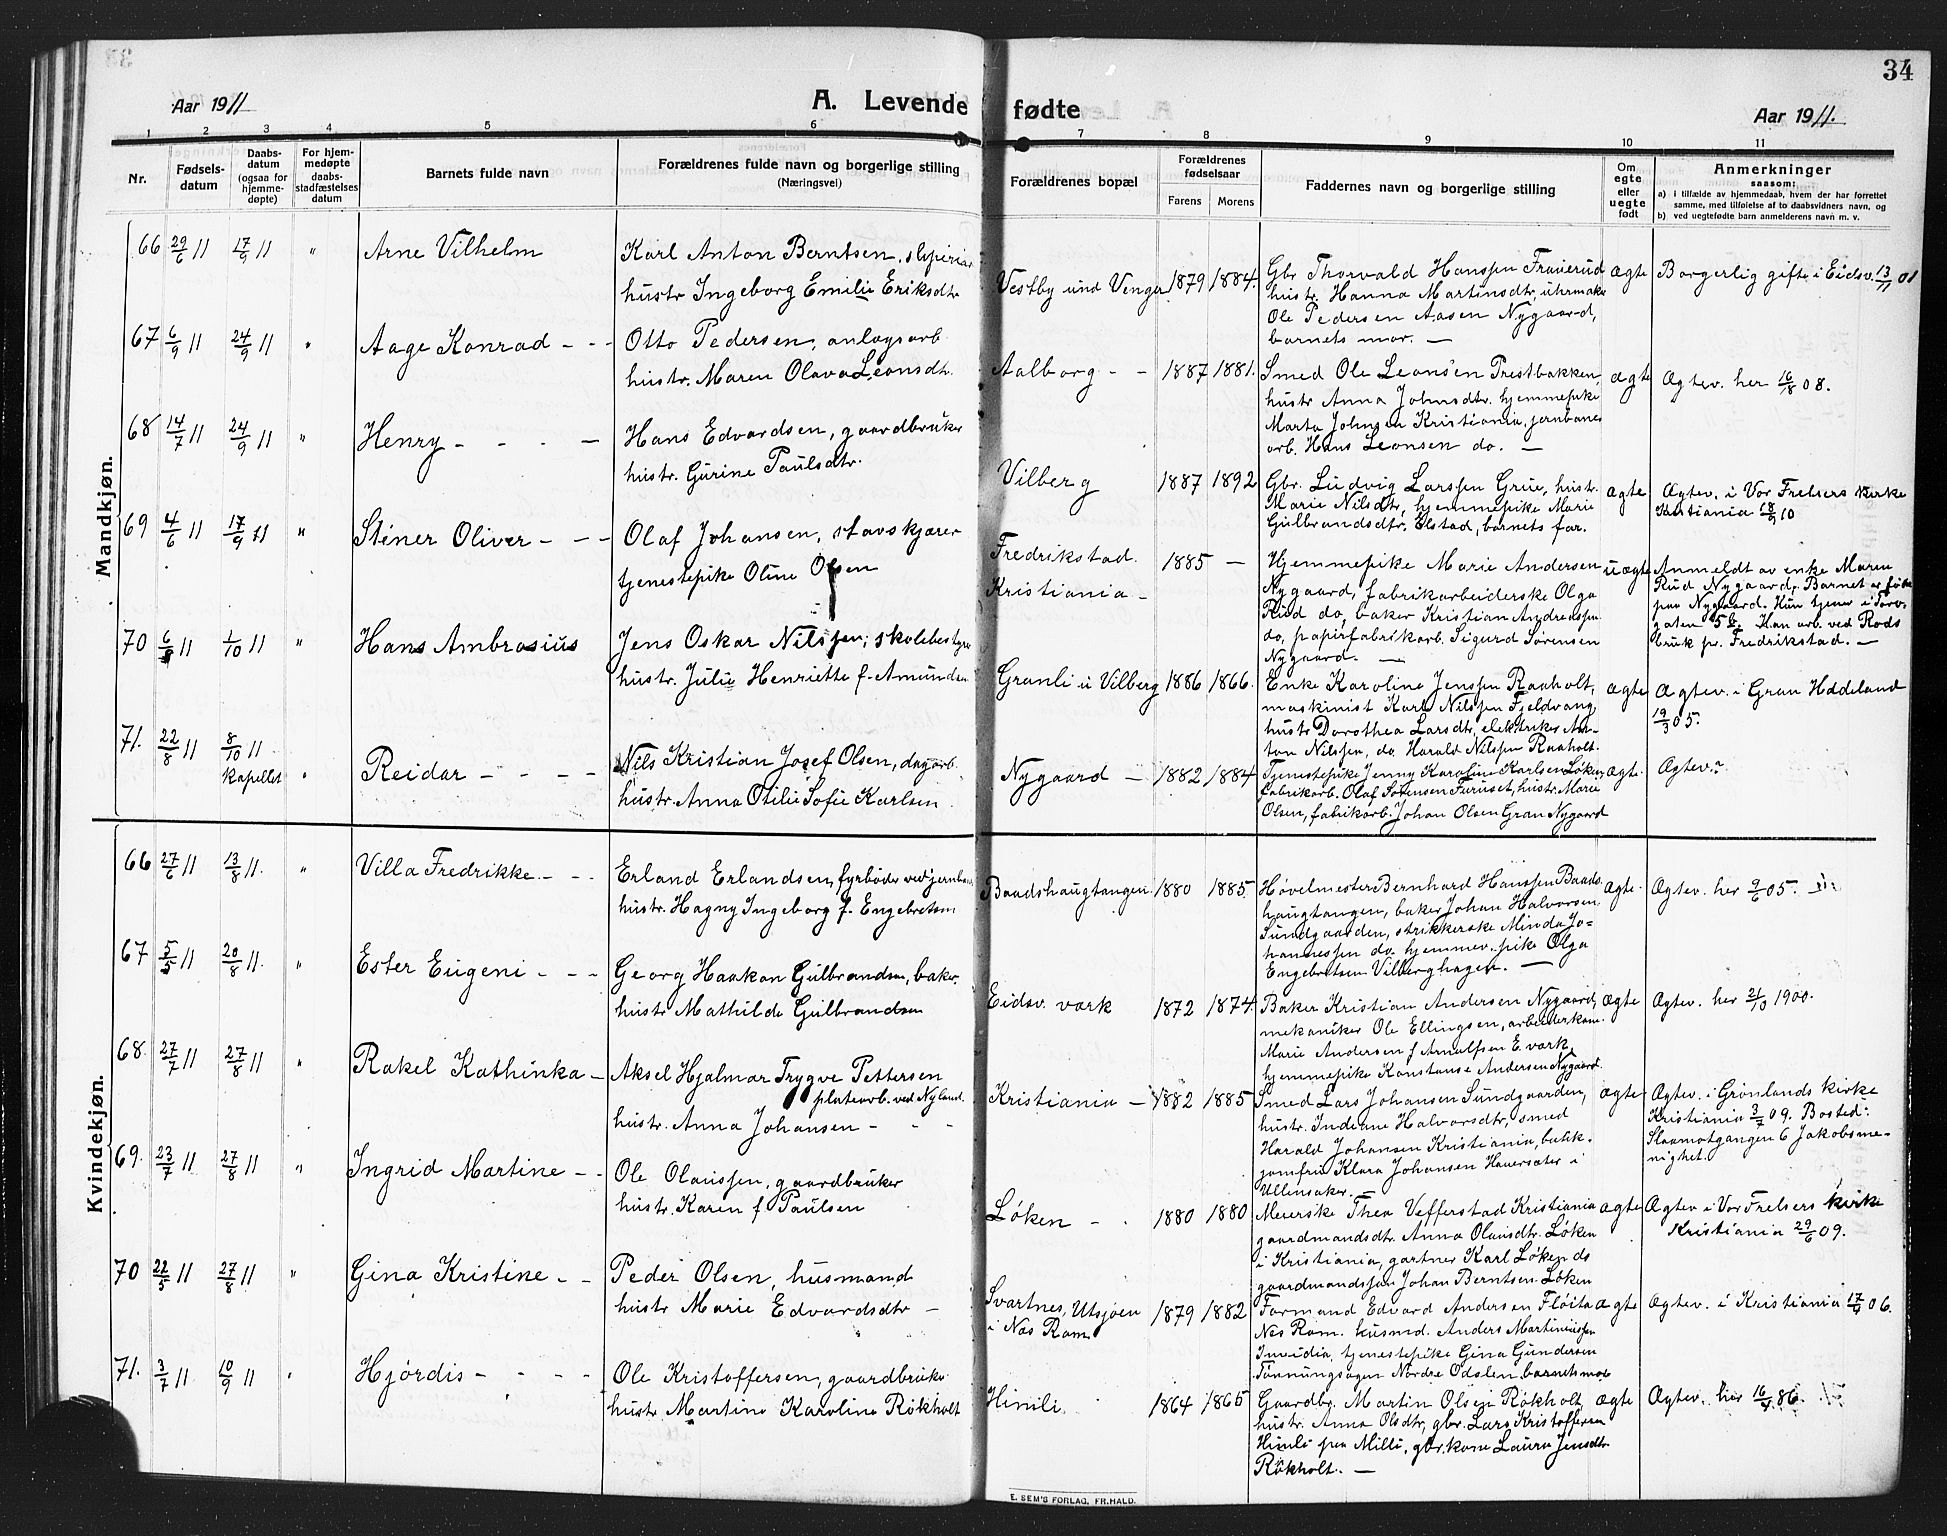 34
Aar 1911
A. Levende fødte
Aar 1911.
1 2 3 4 5 6 7 8 9 10 11
Nr.
Fødsels-
datum
Daabs-
datum
(ogsaa for
hjemme-
døpte)
For hjem-
medøpte
daabs-
stadfæstelses
datum
Barnets fulde navn
Forældrenes fulde navn og borgerlige stilling
(Næringsvei)
Forældrenes bopæl
Forældrenes
fødselsaar
Farens Morens
Faddernes navn og borgerlige stilling
Om
egte
eller
uegte
født
Anmerkninger
saasom:
a) i tilfælde av hjemmedaab, hvem der har forrettet
samme, med tilføielse af to daabsvidners navn, og
b) ved uegtefødte barn anmelderens navn m. v.
Mandkjøn.
66 29/6 11 17/9 11 " Arne Vilhelm
Karl Anton Berntsen,
hustr. Ingeborg Emilie Eriksdtr
Vestby und Vinger 1879 1884.
Gbr. Thorvald Hanssen
hustr. Hanna Martinsdtr, uhrmaker
Ole Pedersen Aasen Nygaard,
barnets mor. —
ægte Borgerlig gifte i Eidsv. 13/11 01
67 6/9 11 24/9 11 " Aage Konrad - - -
Otto Pedersen, anlægsarb
hustr. Maren Olava Leonsdtr.
Aalborg - - 1887 1881.
Smed Ole Leonsen Præstbakken,
hustr Anna Johnsdtr. hjemmepike
Marta Johnsen Kristiania, jernbane
arb. Hans Leonsen do. —
ægte Ægtev. her 16/8 08.
68 14/7 11 24/9 11 " Henry - - - —
Hans Edvardsen, gaardbruker
hustr. Gurine Paulsdtr.
Vilberg 1887 1892
Gbr. Ludvig Larssen Grue, hustr.
Marie Nilsdtr, hjemmepike Marie
Gulbrandsdtr. Elstad, barnets far.
ægte Ægtev. i Vor Frelsers kirke
Kristiania 18/9 10
69 4/6 11 17/9 11 " Stener Oliver - - -
Olaf Johansen, stavskjærer
tjenestepike Oline Olsen
Fredrikstad.
Kristiania - 1885 —
Hjemmepike Marie Andersen
Nygaard, fabrikarbeiderske Olga
Rud do, baker Kristian Andreassen
do, papirfabrikarb. Sigurd Sørensen
Nygaard. —
uægte Anmeldt av enke Maren
Rud Nygaard. Barnet er født
paa Nygaard. Hun tjener i Torv-
gaten 5b. Han arb. ved Rods
bruk pr. Fredrikstad. —
70 11 1/10 11 " Hans Ambrosius
Jens Oskar Nilssen, skolebestyrer
hustr. Julie Henriette f. Amundsen
Granli u Vilberg 1886 1866.
Enke Karoline Jenssen Raaholt,
maskinist Karl Nilssen Fjeldvang
hustr Dorothea Larsdtr, elektriker An-
ton Nilssen, do Harald Nilssen Raaholt.
ægte Ægtev. i Gran Hadeland
19/3 05.
71. 22/8 11 8/10 11
Kapellet " Reidar - - - -
Nils Kristian Josef Olsen, dagarb.
hustr. Anna Otilie Sofie Karlsen.
Nygaard — 1882 1884
Tjenestepike Jenny Karoline Karlsen Løken,
fabrikarb. Olaf Sørensen Furuset, hustr. Marie
Olsen, fabrikarb. Johan Olsen Gran Nygaard
ægte. Ægtev.?
Kvindekjøn.
66 27/6 11 13/8 11. " Villa Fredrikke. - - -
Erland Erlandsen, fyrbøder ved jernban.
hustr. Hagny Ingeborg f. Engebretsen
Baadshaugtangen 1880 1885.
Høvelmester Bernhard Hanssen Baads-
haugtangen, baker Johan Halvorsen
Sundgaarden, strikkerske Minda Jo-
hannessen do. hjemmev. pike Olga
Engebretsen Vilberghagen. —
ægte. Ægtev. her 9/6 05.
67 5/5 11 20/8 11. " Ester Eugeni - - -
Georg Haakon Gulbrandsen, baker.
hustr Mathilde Gulbrandsen
Eidsv. værk 1872 1874.
Baker Kristian Andersen Nygaard,
mekaniker Ole Ellingsen, arbeiderkone
Marie Andersen f Arnulfsen E. værk,
hjemmepike Konstanse Andersen Nygaard.
ægte Ægtev. her 21/10 1900.
68. 27/7 11 27/8 11 " Rakel Kathinka -
Aksel Hjalmar Trygve Pettersen
platearb. ved Nyland.
hustr. Anna Johansen - - -
Kristiania - 1882 1885
Smed Lars Johansen Sundgaarden,
hustr. Indiane Halvorsdtr, smed
Harald Johansen Kristiania, butik-
jomfru Klara Johansen Haversæter i
Ullensaker.
ægte Ægtev. i Grønlands kirke
Kristiania 3/7 09. Bosted:
Slaamotgangen 6 Jakobsme-
nighet.
69. 23/7 11 27/8 11 " Ingrid Martine - -
Ole Olaussen, gaardbruker
hustr. Karen f Paulsen
Løken - . 1880 1880
Meierske Thea Vefferstad Kristiania
gaardmandsdtr. Anna Olausdtr. Løken
i Kristiania, gartner Karl Løken ds
gaardmandssøn Johan Berntsen Løken
ægte Ægtev i Vor Frelsers kirke
Kristiania 29/6 09.
70 22/5 11 27/8 11 " Gina Kristine - -
Peder Olsen, husmand
hustr Marie Edvardsdtr -
Svartnes, Utsjøen
i Nes Rom. 1879 1882
Formand Edvard Andersen Fløita
Nes Rom. husmd. Anders Martiniussen
tjenestepike Gina Gundersen
Nordre Odalen barnets mor
ægte Ægtev. i Kristiania 17/4 06.
71. 3/7 11 10/9 11 " Hjørdis - - - -
Ole Kristoffersen, gaardbruker
hustr. Martine Karoline Røkholt
Himli 1864 1865
Gaardbr. Martin Olsen Røkholt,
hustr. Anna Olsdtr, gbr. Lars Kristoffersen
Himli paa Milli, gbr.kone Laura Jensdtr
Røkholt. —
ægte Ægtev. her 16/4 86.
E. SEM'S FORLAG, FR.HALD.